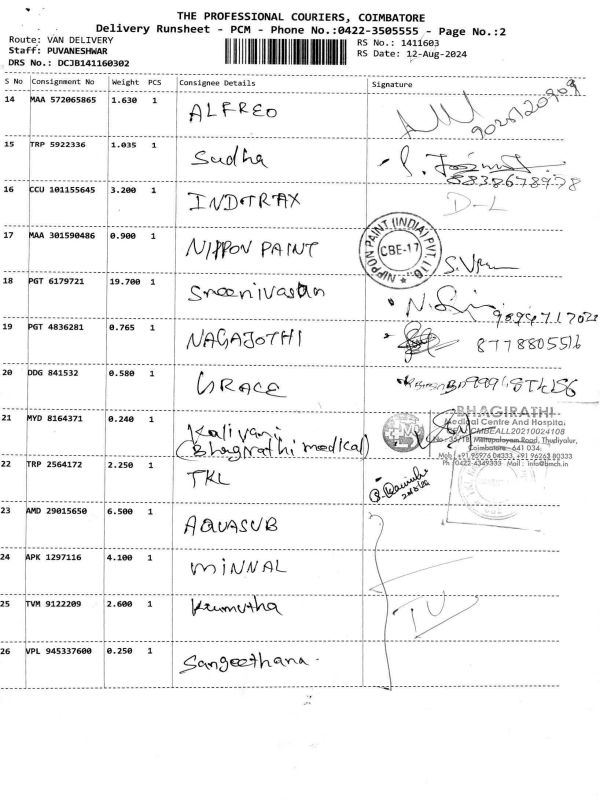 THE PROFESSIONAL COURIERS, COIMBATORE
Delivery Runsheet - PCM - Phone No.:0422-3505555 - Page No.:2
Route: VAN DELIVERY RS No.: 1411603
Staff: PUVANESHWAR RS Date: 12-Aug-2024
DRS No.: DCJB141160302
S No Consignment No Weight PCS Consignee Details Signature
14 MAA 572065865 1.630 1 ALFREO
15 TRP 5922336 1.035 1 Sudha
16 CCU 101155645 3.200 1 INDOTRAX D-L
17 MAA 301590486 0.900 1 NIPPON PAINT NIPPON PAINT (INDIA) PVT. LTD. CBE-17
18 PGT 6179721 19.700 1 Sreenivasan
19 PGT 4836281 0.765 1 NAGAJOTHI 8778805516
20 DDG 841532 0.580 1 GRACE
21 MYD 8164371 0.240 1 Kalivani
(Bhagirathi medical)
BHAGIRATHI
Medical Centre And Hospital
CMBEALL20210024108
No: 35/18, Mettupalayam Road, Thudiyalur,
Coimbatore - 641 034.
Mob: +91 95976 04333, +91 96262 80333
Ph: 0422-4349333 Mail: info@bmch.in
22 TRP 2564172 2.250 1 TKL
23 AMD 29015650 6.500 1 AQUASUB
24 APK 1297116 4.100 1 MINNAL
25 TVM 9122209 2.600 1 Kumutha
26 VPL 945337600 0.250 1 Sangeethana.